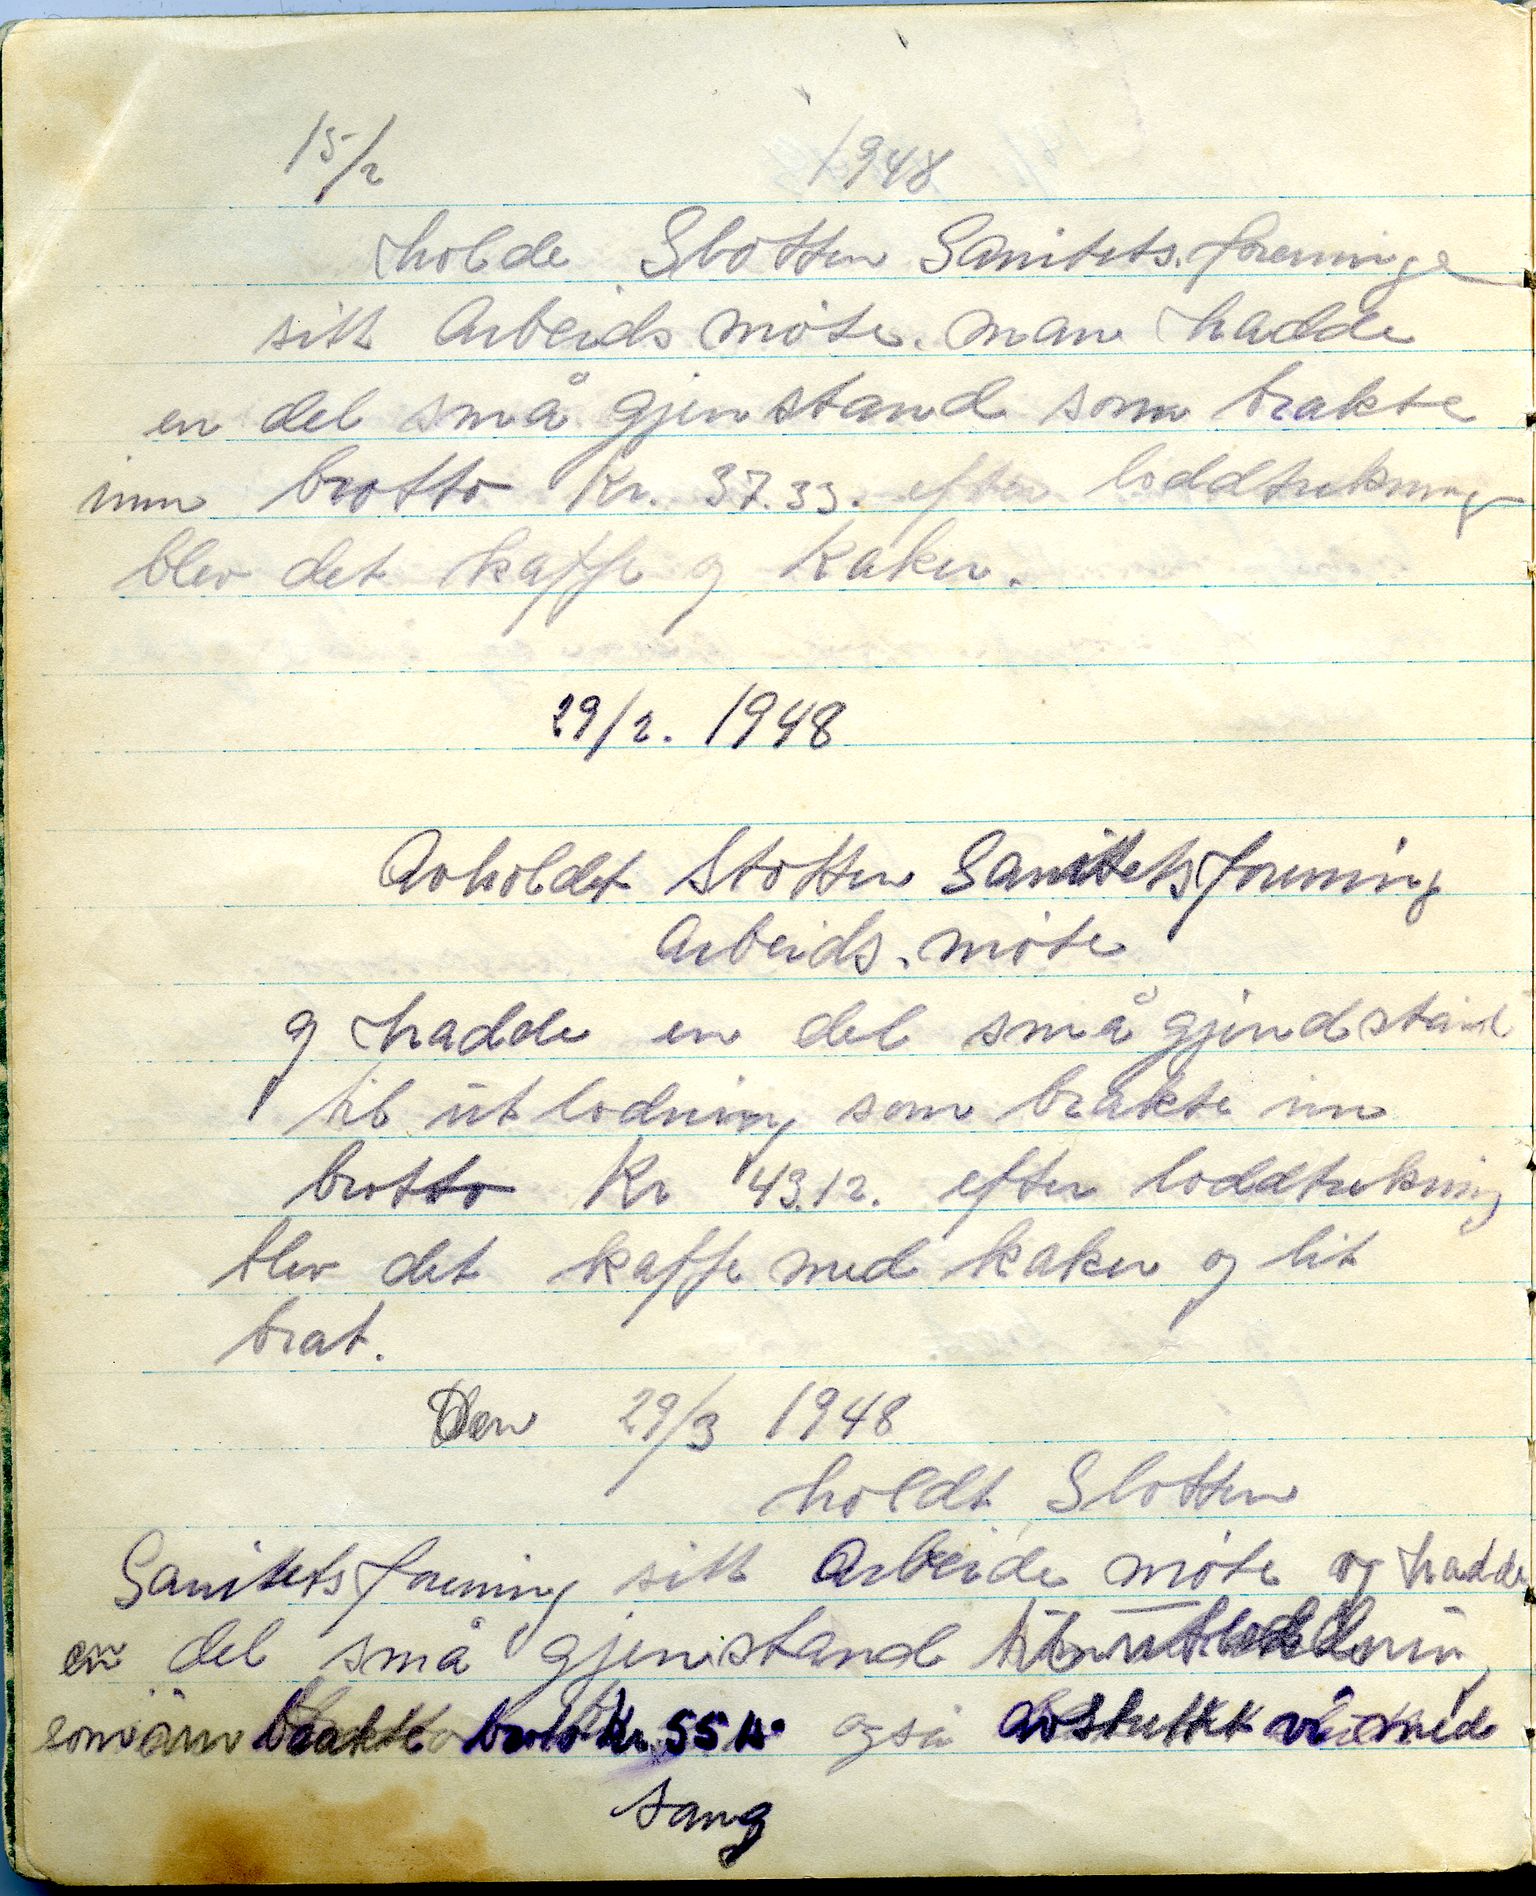 15/2 1948
holde Slotten Sanitets.forening
sitt Arbeids møte. man hadde
en del små gjenstand som brakte
inn brotto Kr. 37.33. efter loddtrekning
blev det kaffe og Kaker.
29/2. 1948
Avholdet Slotten Sanitetsforening
Arbeids. møte
og hadde en del små gjendstand
til utlodning som brakte inn
brotto Kr 43.12. efter loddtrekning
blev det kaffe med kaker og lit
brat.
Den 29/3 1948
holdt Slotten
Sanitetsforening sitt Arbeids møte og hadde
en del små gjenstand til utloddning
som inn brakte broto Kr. 55 også vi med
sang